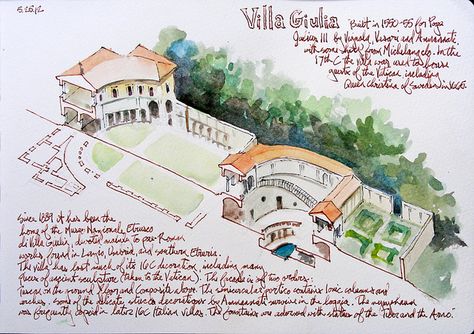 5.25.12
Villa Giulia
Built in 1550-55 for Pope
Julius III by Vignola, Vasari and Ammanati,
with some help from Michelangelo. In the
17th C the villa was used to house
guests of the Vatican, including
Queen Christina of Sweden in 1665.
Since 1889 it has been the
home of the Museo Nazionale Etrusco
di Villa Giulia, devoted mainly to pre-Roman
works found in Lazio, Umbria, and southern Etruria.
The villa has lost much of its 16C decoration, including many
pieces of ancient sculpture (taken to the Vatican). The facade is of two orders:
Tuscan on the ground floor and Composite above. The semicircular portico contains Ionic columns and
arches. Some of the delicate stucco decorations by Ammannati survive in the loggia. The nymphaeum
was frequently copied in later 16C Italian villas. The fountains are adorned with statues of the Tiber and the Arno.